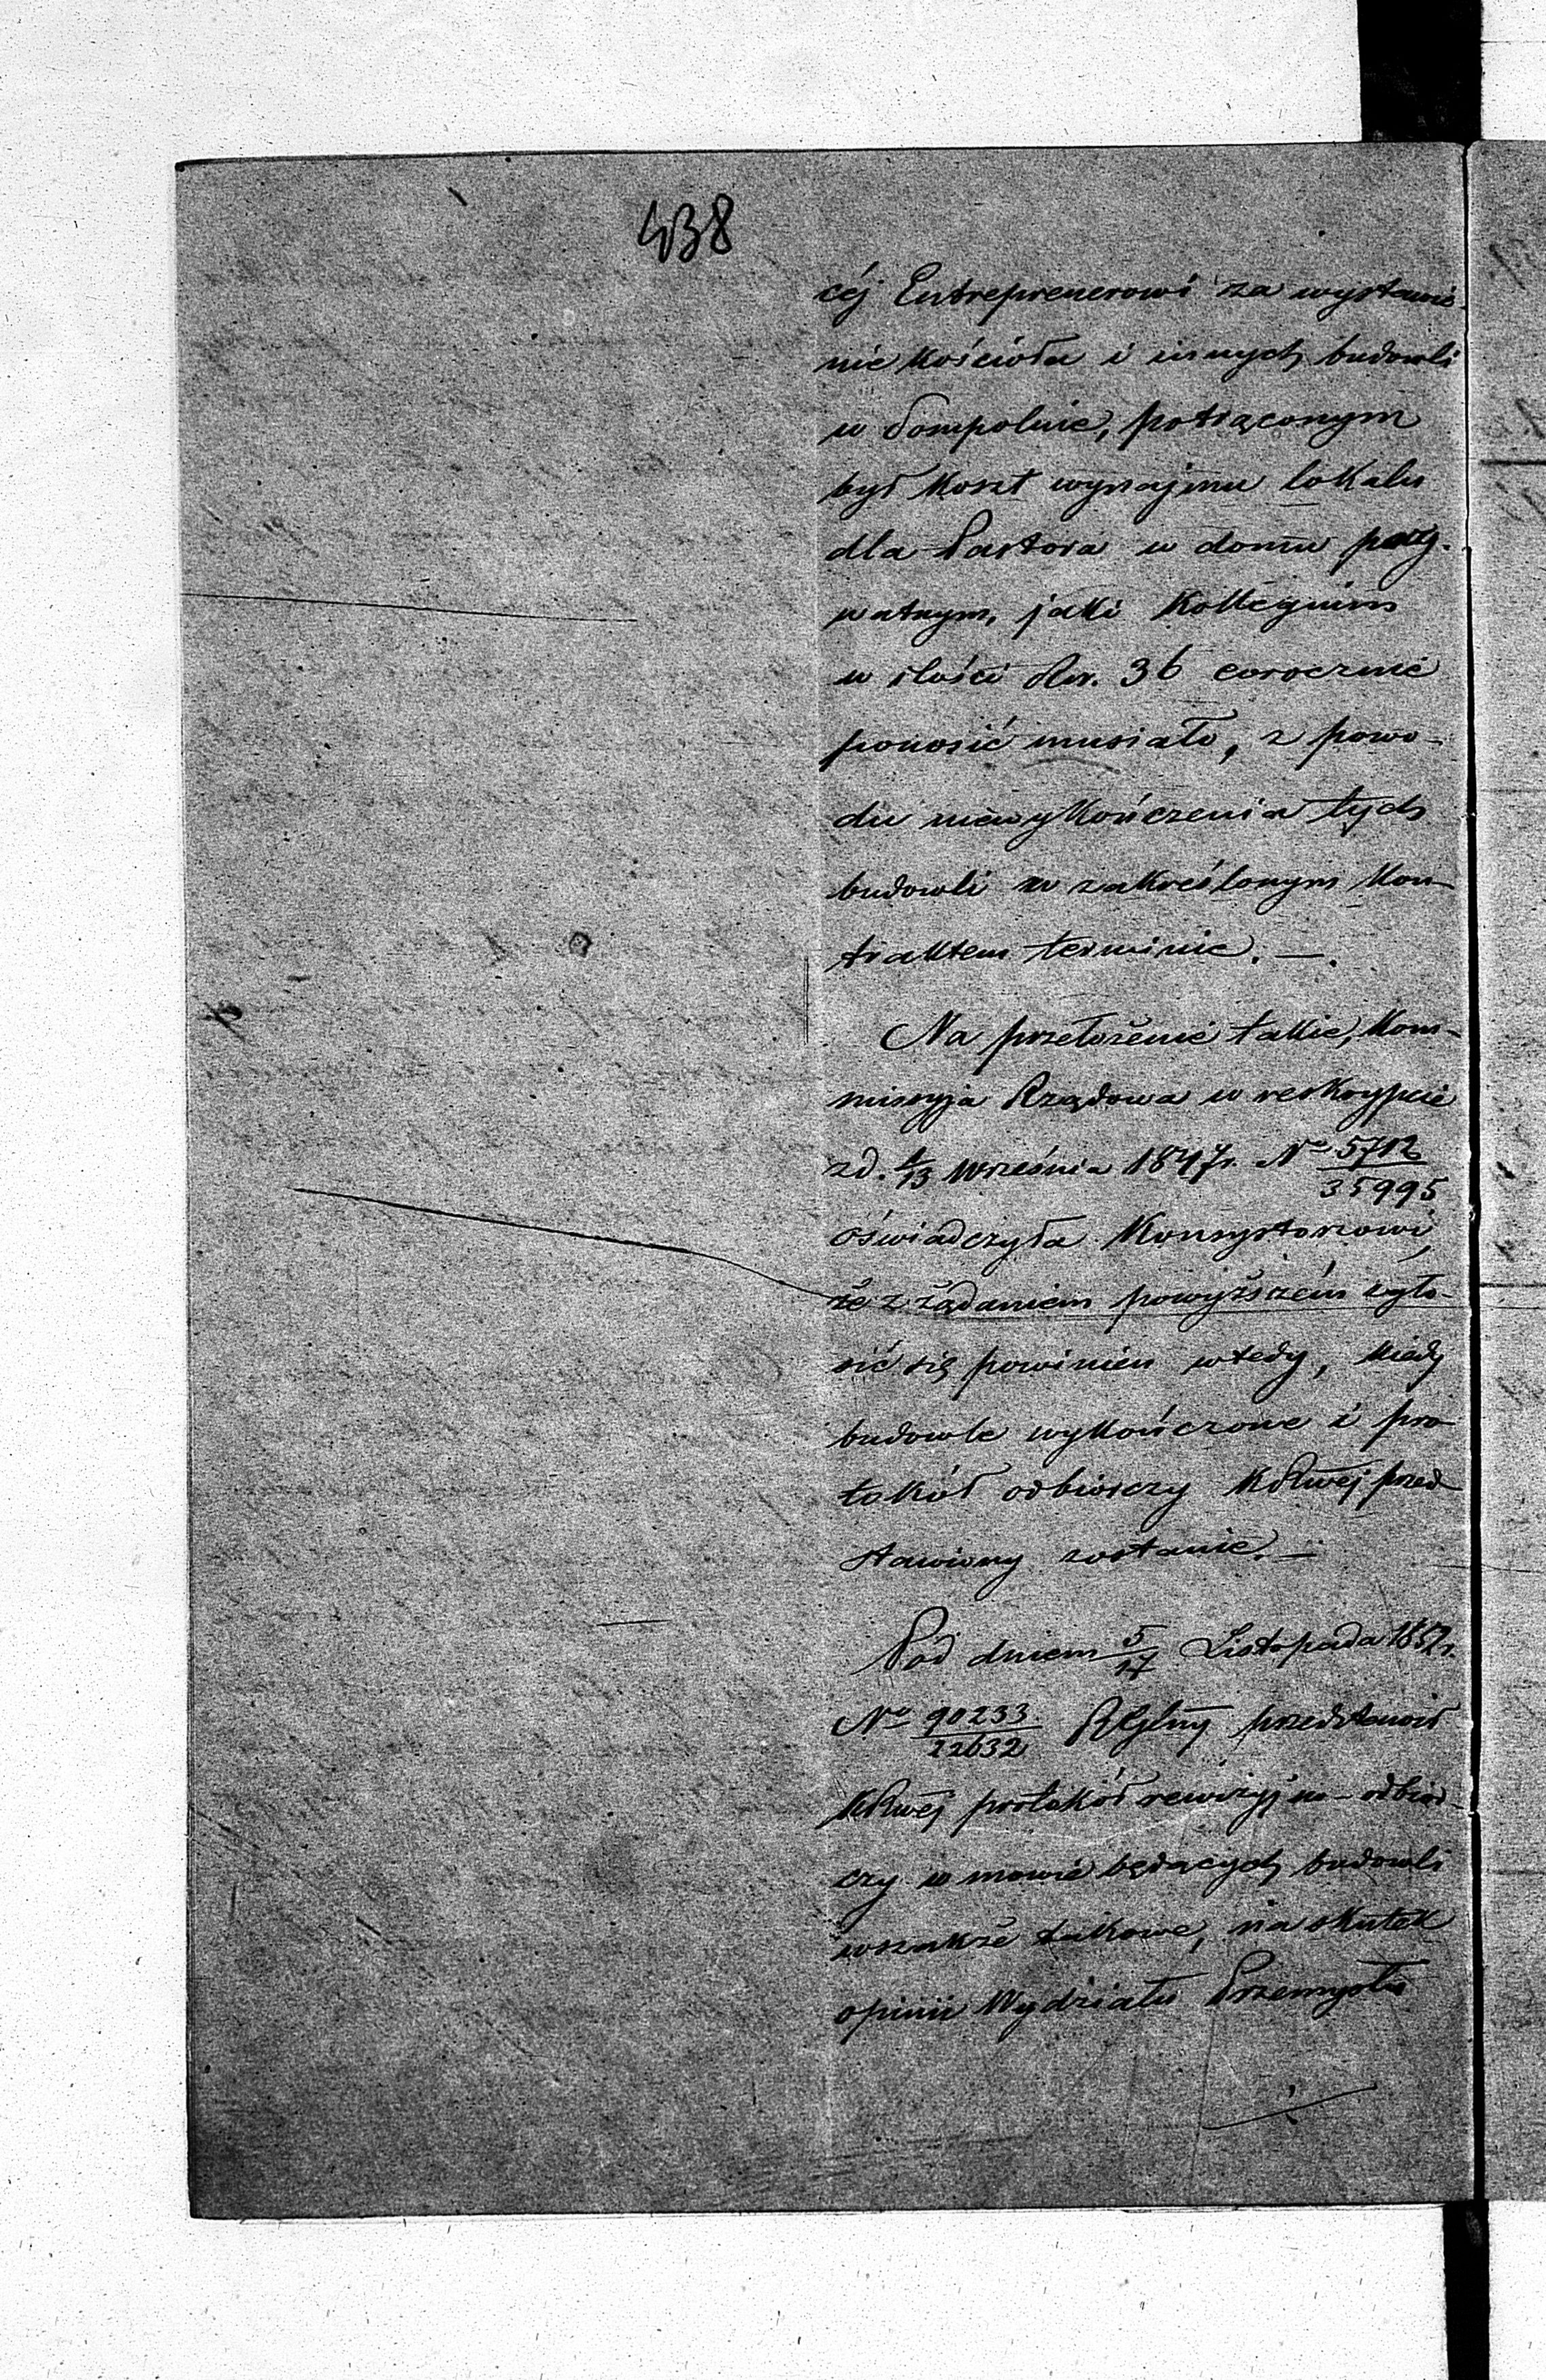 438
céj Entreprenerowi za wystawie-
nie kościoła i innych budowli
w Sompolnie, potrąconym
był koszt wynajmu lokalu
dla Pastora w domu pry-
watnym, jaki Kollegium
w ilości Rsr. 36 corocznie
ponosić musiało, z powo-
du niewykończenia tych
budowli w zakreślonym kon-
traktem terminie. —.
Na przełożenie takie, Kom-
missyja Rządowa w reskrypcie
z d. 1/13 Września 1847 r. No 5712/35995
oświadczyła Konsystorzowi,
że z żądaniem powyższém zgło-
sić się powinien wtedy, kiedy
budowle wykończone i pro-
tokół odbiorczy KRwéj przed-
stawiony zostanie. —
Pod dniem 5/17 Listopada 1852 r.
No 90233/22632 RGlny przedstawił
KRwéj protokół rewizyjno-odbior-
czy w mowie będących budowli
wszakże takowe, na skutek
opinii Wydziału Przemysłu